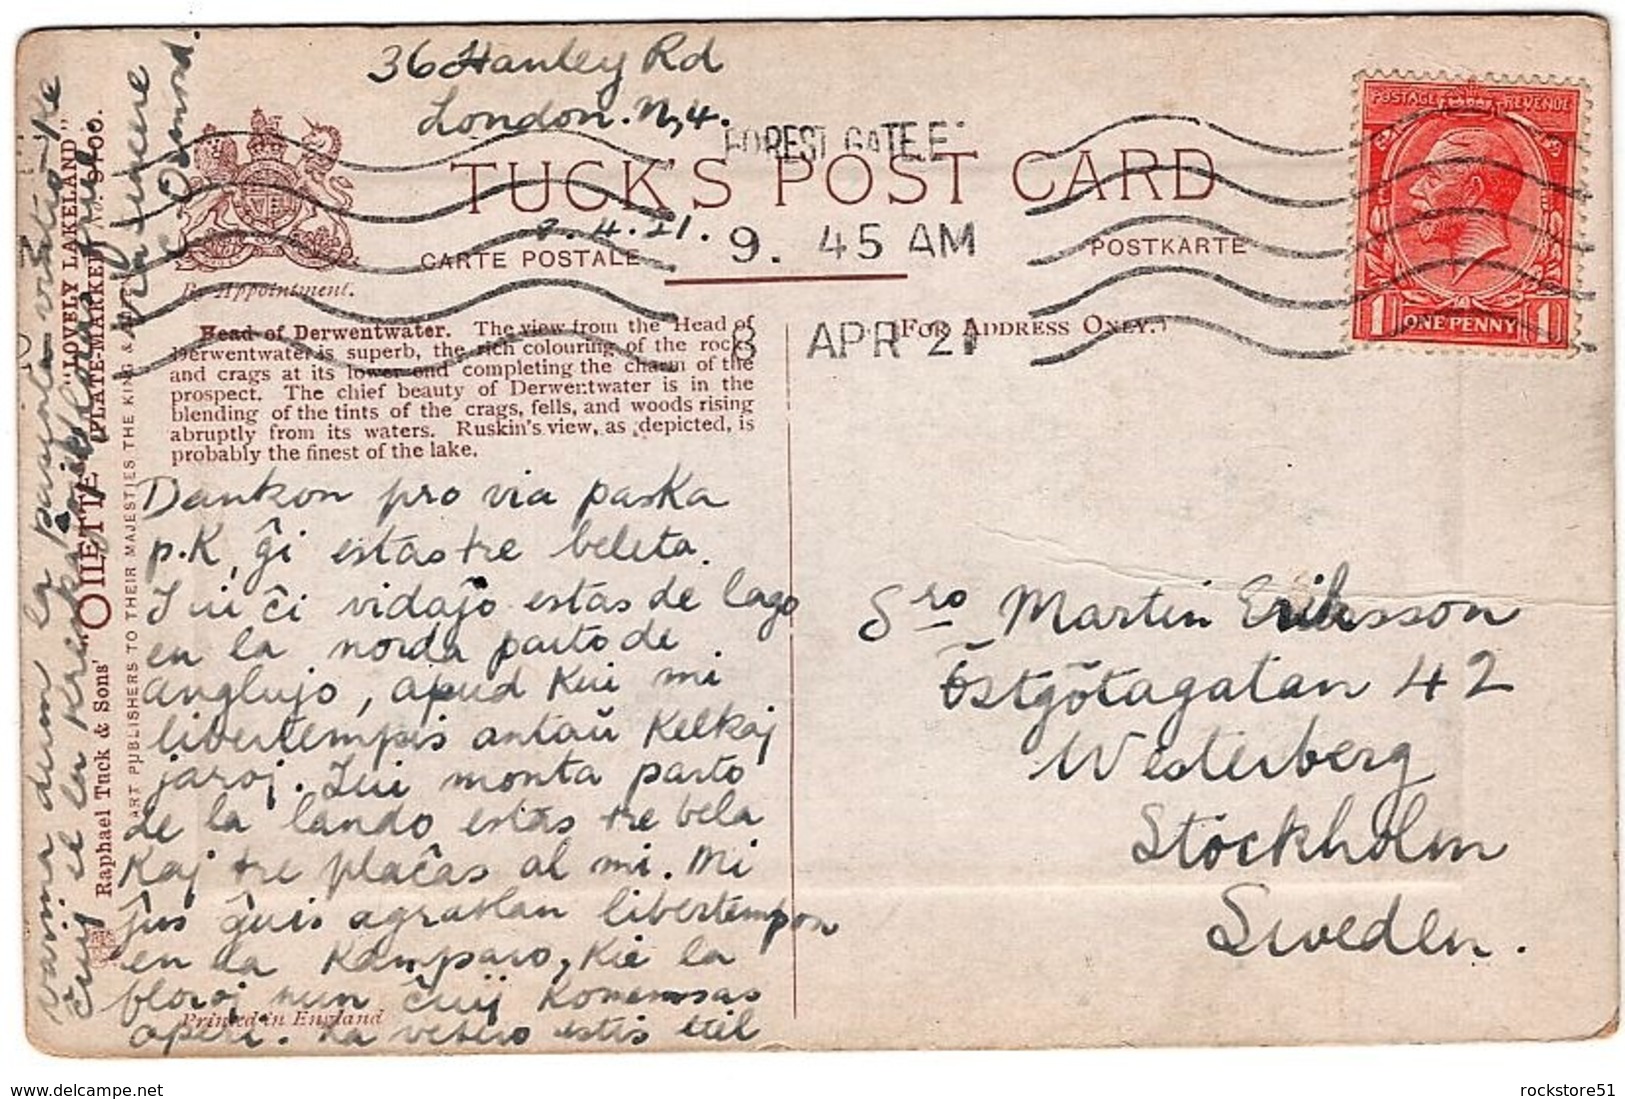 36 Hanley Rd
London. N,4.
FOREST GATE.E
TUCK'S POST CARD
9.4.21.
9. 45 AM
8 APR 21
CARTE POSTALE
POSTKARTE
By Appointment.
(FOR ADDRESS ONLY.)
POSTAGE REVENUE
1 ONE PENNY 1
Head of Derwentwater. The view from the Head of
Derwentwater is superb, the rich colouring of the rocks
and crags at its lower end completing the charm of the
prospect. The chief beauty of Derwentwater is in the
blending of the tints of the crags, fells, and woods rising
abruptly from its waters. Ruskin's view, as depicted, is
probably the finest of the lake.
Dankon pro via paska
p.K, ĝi estas tre beleta.
Tiu ĉi vidaĵo estas de lago
en la norda parto de
anglujo, apud kiu mi
libertempis antaŭ kelkaj
jaroj. Tiu monta parto
de la lando estas tre bela
Kaj tre plaĉas al mi. Mi
ĵus ĝuis agrablan libertempon
en la Kamparo, Kie la
floroj nun ĉiuj Komensas
aperi. La vetero estis
varma dum la
ĉiuj el la
sincere
Osmond.
Raphael Tuck & Sons' "OILETTE"
"LOVELY LAKELAND"
(PLATE-MARKED) No. 9100.
ART PUBLISHERS TO THEIR MAJESTIES THE KING &
Printed in England
Sro Martin Eriksson
Östgötagatan 42
Westerberg
Stockholm
Sweden.
www.delcampe.net
rockstore51